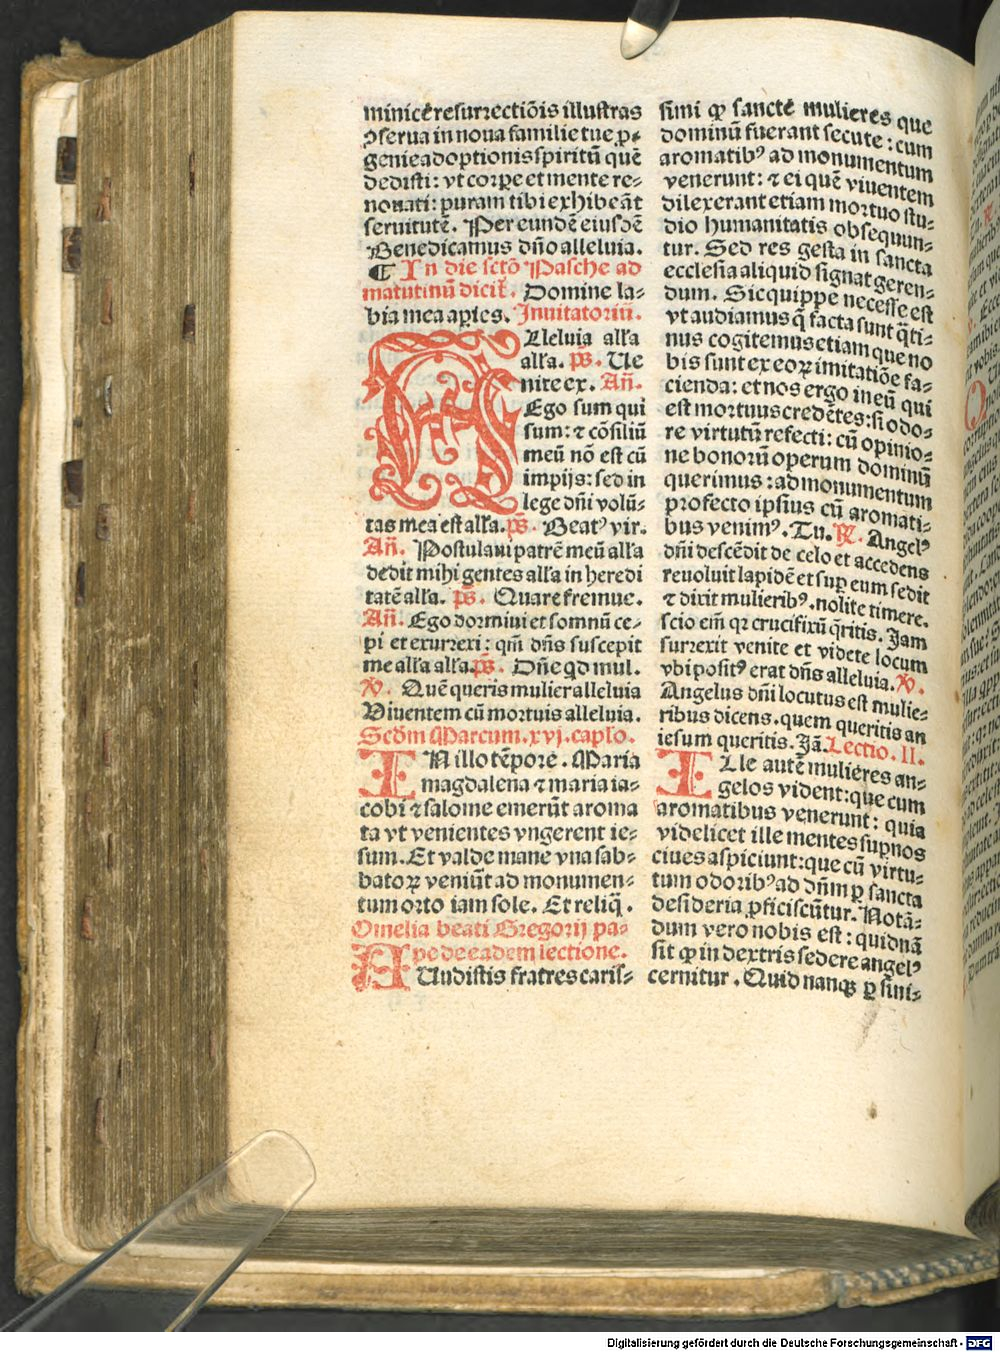 minicē resurrectiōis illustras
ↄserua in noua familie tue ꝓ-
genie adoptionis spiritū quē
dedisti: vt corpe et mente re-
nouati: puram tibi exhibeāt
seruitutē. Per eundē eiusdē
Benedicamus dño alleluia.
¶ In die sctō Pasche ad
matutinū dicit̄. Domine la-
bia mea aperies. Inuitatoriū.
Alleluia all'a
all'a. ps̄. Ue
nite ex. Añ.
Ego sum qui
sum: ⁊ cōsiliū
meū nō est cū
impijs: sed in
lege dñi volū-
tas mea est all'a. ps̄. Beatꝰ vir.
Añ. Postulaui patrē meū all'a
dedit mihi gentes all'a in heredi
tatē all'a. ps̄. Quare fremue.
Añ. Ego dormiui et somnū ce-
pi et exurrexi: qm̄ dñs suscepit
me all'a all'a. ps̄. Dñe qd mul.
℣. Quē queris mulier alleluia
Viuentem cū mortuis alleluia.
Scdm Marcum. xvj. caplo.
IN illo tēpore. Maria
magdalena ⁊ maria ia-
cobi ⁊ salome emerūt aroma
ta vt venientes vngerent ie-
sum. Et valde mane vna sab-
batoꝝ veniūt ad monumen-
tum orto iam sole. Et reliq̄.
Omelia beati Gregorij pa-
pe de eadem lectione.
AUdistis fratres caris-
simi ꝙ sancte mulieres que
dominū fuerant secute: cum
aromatibꝰ ad monumentum
venerunt: ⁊ ei quē viuentem
dilexerant etiam mortuo stu-
dio humanitatis obsequun-
tur. Sed res gesta in sancta
ecclesia aliquid signat geren-
dum. Sic quippe necesse est
vt audiamus q̄ facta sunt q̄ti-
nus cogitemus etiam que no
bis sunt ex eoꝝ imitatiōe fa-
cienda: et nos ergo in eū qui
est mortuus credētes: si odo-
re virtutū refecti: cū opinio-
ne bonorū operum dominū
querimus: ad monumentum
profecto ipsius cū aromati-
bus venimꝰ. Tu. ℟. Angelꝰ
dñi descēdit de celo et accedens
reuoluit lapidē et suꝑ eum sedit
⁊ dixit mulieribꝰ. nolite timere.
scio eim̄ qꝛ crucifixū q̄ritis. Jam
surrexit venite et videte locum
vbi positꝰ erat dñs alleluia. ℣.
Angelus dñi locutus est mulie-
ribus dicens. quem queritis an
iesum queritis. Jā. Lectio. II.
ILle autē mulieres an-
gelos vident: que cum
aromatibus venerunt: quia
videlicet ille mentes suꝑnos
ciues aspiciunt: que cū virtu-
tum odoribꝰ ad dñm ꝑ sancta
desideria ꝓficiscūtur. Notā-
dum vero nobis est: quidnā
sit ꝙ in dextris sedere angelꝰ
cernitur. Quid nanqꝫ ꝑ sini-
Digitalisierung gefördert durch die Deutsche Forschungsgemeinschaft - DFG